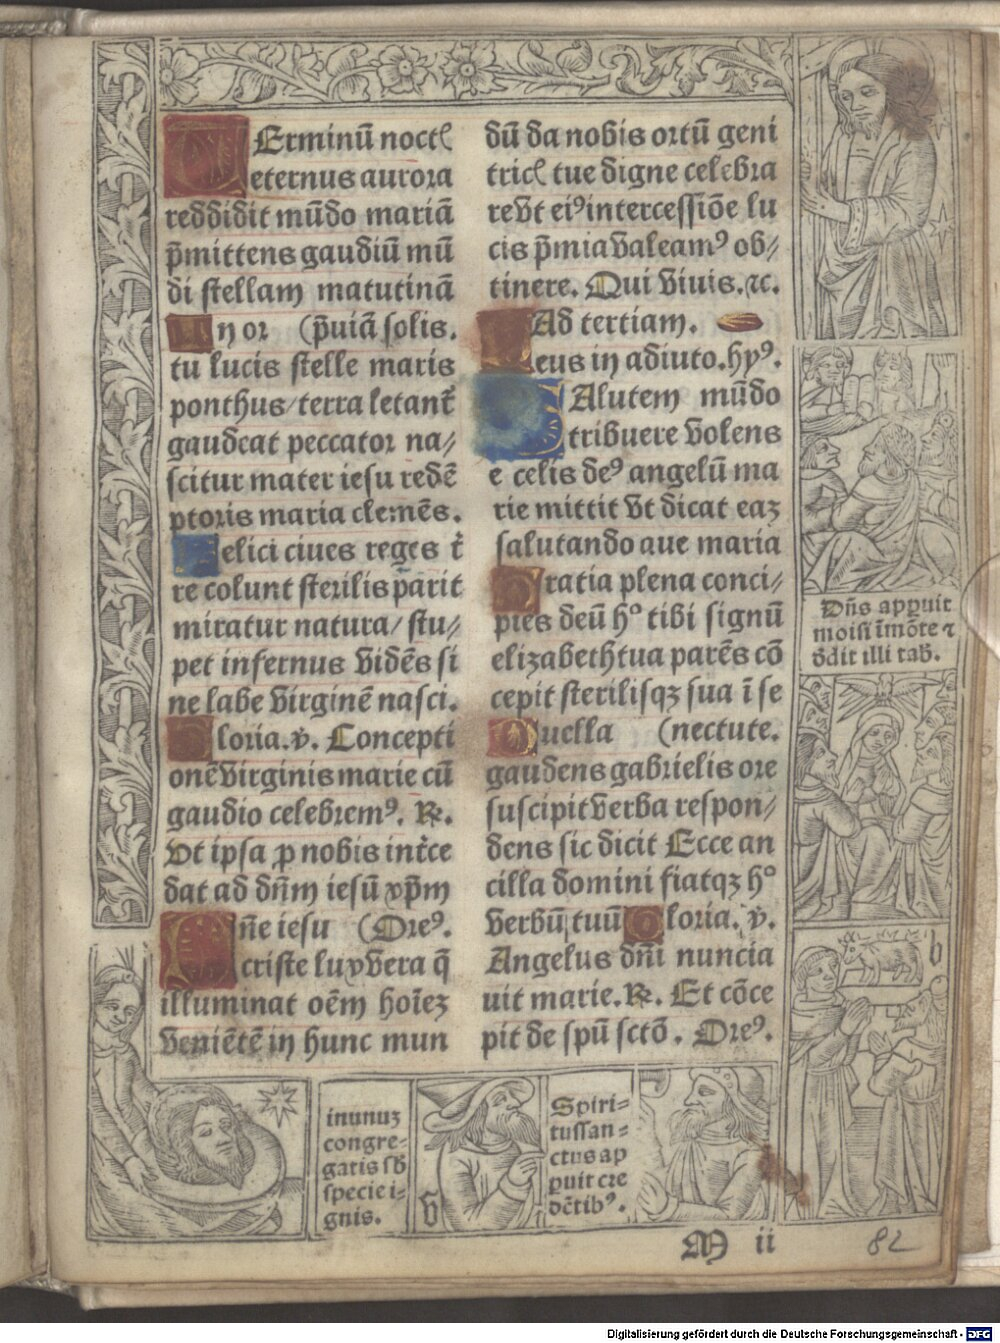 TErminū noctꝭ
eternus aurora
reddidit mūdo mariā
p̄mittens gaudiū mū
di stellam matutinā
Ayor (p̄uiā solis.
tu lucis stelle maris
ponthus/terra letant᷑
gaudeat peccator na⸗
scitur mater iesu redē
ptoris maria clemēs.
Felici ciues reges t᷑
re colunt sterilis parit
miratur natura/ stu⸗
pet infernus vidēs si
ne labe virginē nasci.
Gloria.v̓. Concepti
onē virginis marie cū
gaudio celebremꝰ. ℞.
Vt ipsa ꝓ nobis int᷑ce
dat ad dn̄m iesū xp̄m
Dn̄e iesu (Oreꝰ.
criste lux vera q̄
illuminat oēm hoīeꝫ
veniētē in hunc mun
dū da nobis ortū geni
tricꝭ tue digne celebra
revt eiꝰ intercessiōe lu
cis p̄mia valeamꝰ ob⸗
tinere. Qui viuis.⁊c.
Ad tertiam.
Deus in adiuto.hyꝰ.
SAlutem mūdo
tribuere volens
e celis deꝰ angelū ma
rie mittit vt dicat eaꝫ
salutando aue maria
Gratia plena conci⸗
pies deū hꝰ tibi signū
elizabeth tua parēs cō
cepit sterilisqꝫ sua ī se
Puella (nectute.
gaudens gabrielis ore
suscipit verba respon⸗
dens sic dicit Ecce an
cilla domini fiatqꝫ hꝰ
verbū tuū Gloria. v̓.
Angelus dn̄i nuncia
uit marie.℞. Et cōce
pit de spū sctō. Oreꝰ.
Dn̄s apꝑuit
moisi ī mōte ⁊
ddit illi tab.
b
inunuꝫ
congre⸗
gatis sb̄
specie i⸗
gnis.
v
Spiri⸗
tussan⸗
ctus ap
ꝑuit cre
dētibꝰ.
M ii
82
Digitalisierung gefördert durch die Deutsche Forschungsgemeinschaft - DFG